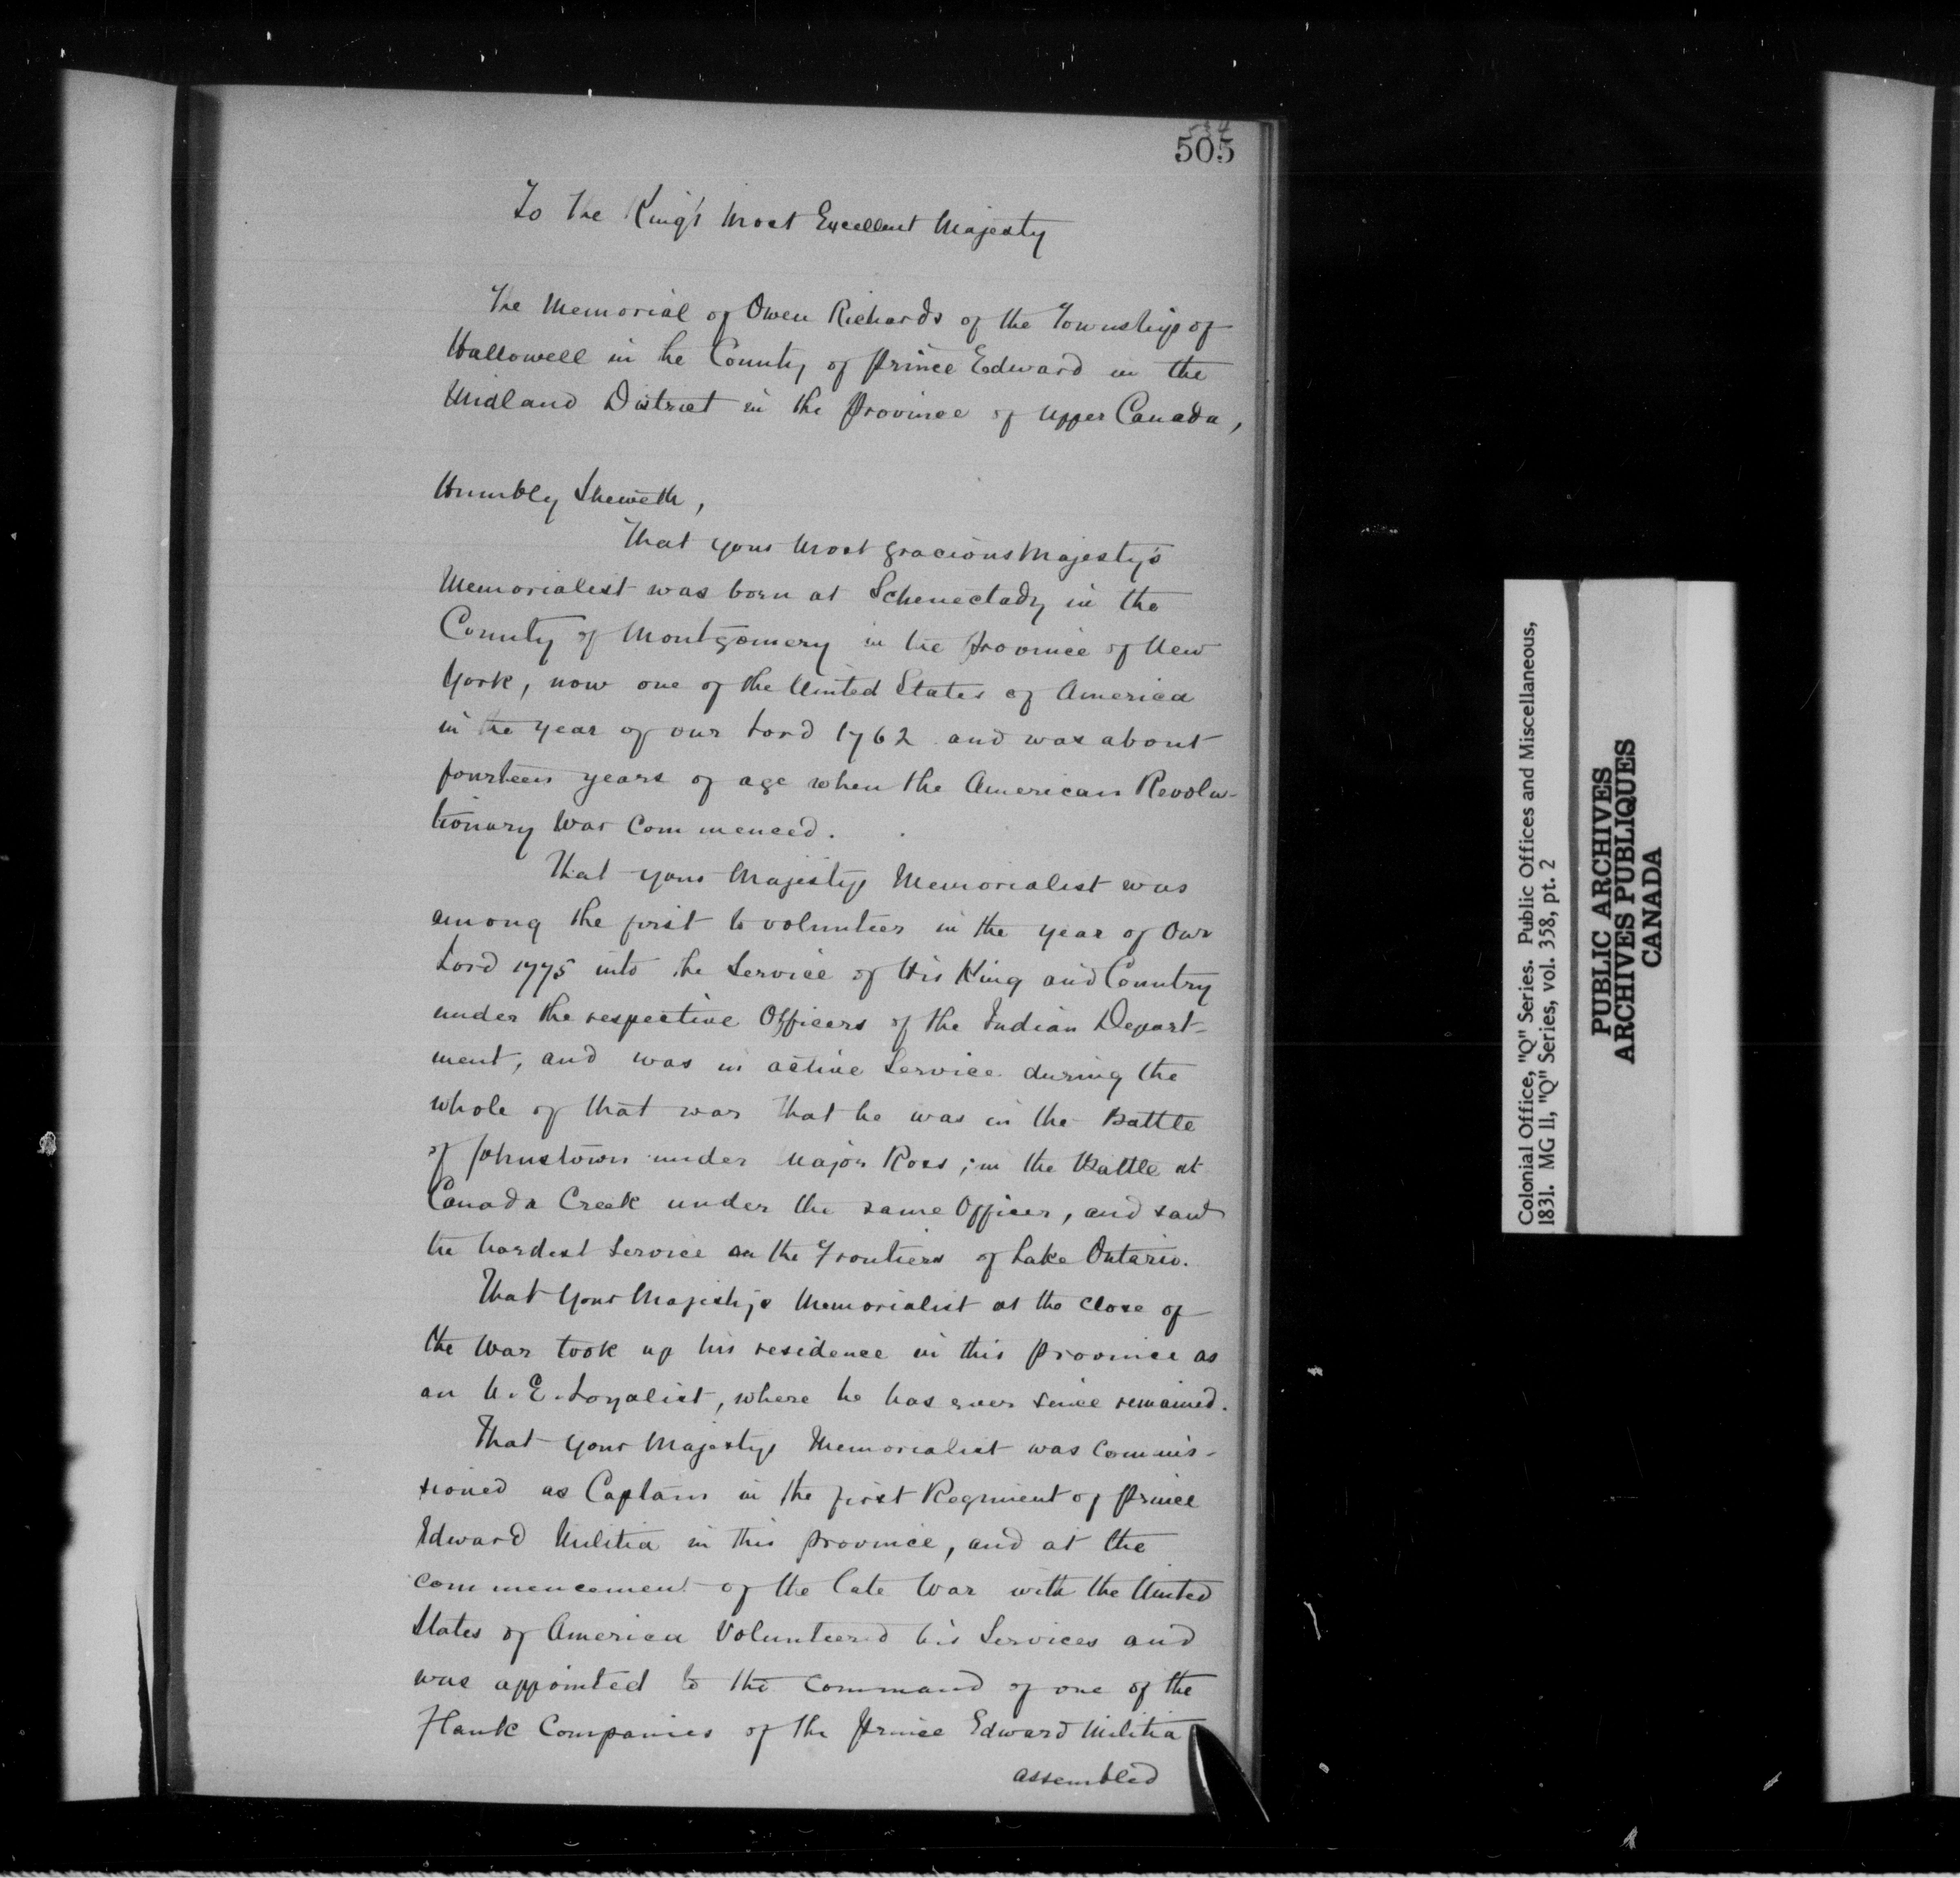 505
To the King's Most Excellent Majesty
The Memorial of Owen Richards of the Township of
Hallowell in the County of Prince Edward in the
Midland District in the Province of Upper Canada,
Humbly Sheweth,
That your Most gracious Majesty's
Memorialist was born at Schenectady in the
County of Montgomery in the Province of New
York, now one of the United States of America
in the year of our Lord 1762 and was about
fourteen years of age when the American Revolu-
tionary War Commenced.
That your Majestys Memorialist was
among the first to volunteer in the year of Our
Lord 1775 into the Service of His King and Country
under the respective Officers of the Indian Depart-
ment, and was in active Service during the
whole of that war That he was in the Battle
of Johnstown under Major Ross; in the Battle at
Canada Creek under the same Officer, and saw
the hardest Service on the Frontiers of Lake Ontario.
That Your Majesty's Memorialist at the close of
the War took up his residence in this Province as
an U. E. Loyalist, where he has ever since remained.
That your Majestys Memorialist was Commis-
sioned as Captain in the first Regiment of Prince
Edward Militia in this Province, and at the
commencement of the late War with the United
States of America Volunteered his Services and
was appointed to the Command of one of the
Flank Companies of the Prince Edward Militia
assembled
Colonial Office, "Q" Series. Public Offices and Miscellaneous,
1831. MG 11, "Q" Series, vol. 358, pt. 2
PUBLIC ARCHIVES
ARCHIVES PUBLIQUES
CANADA